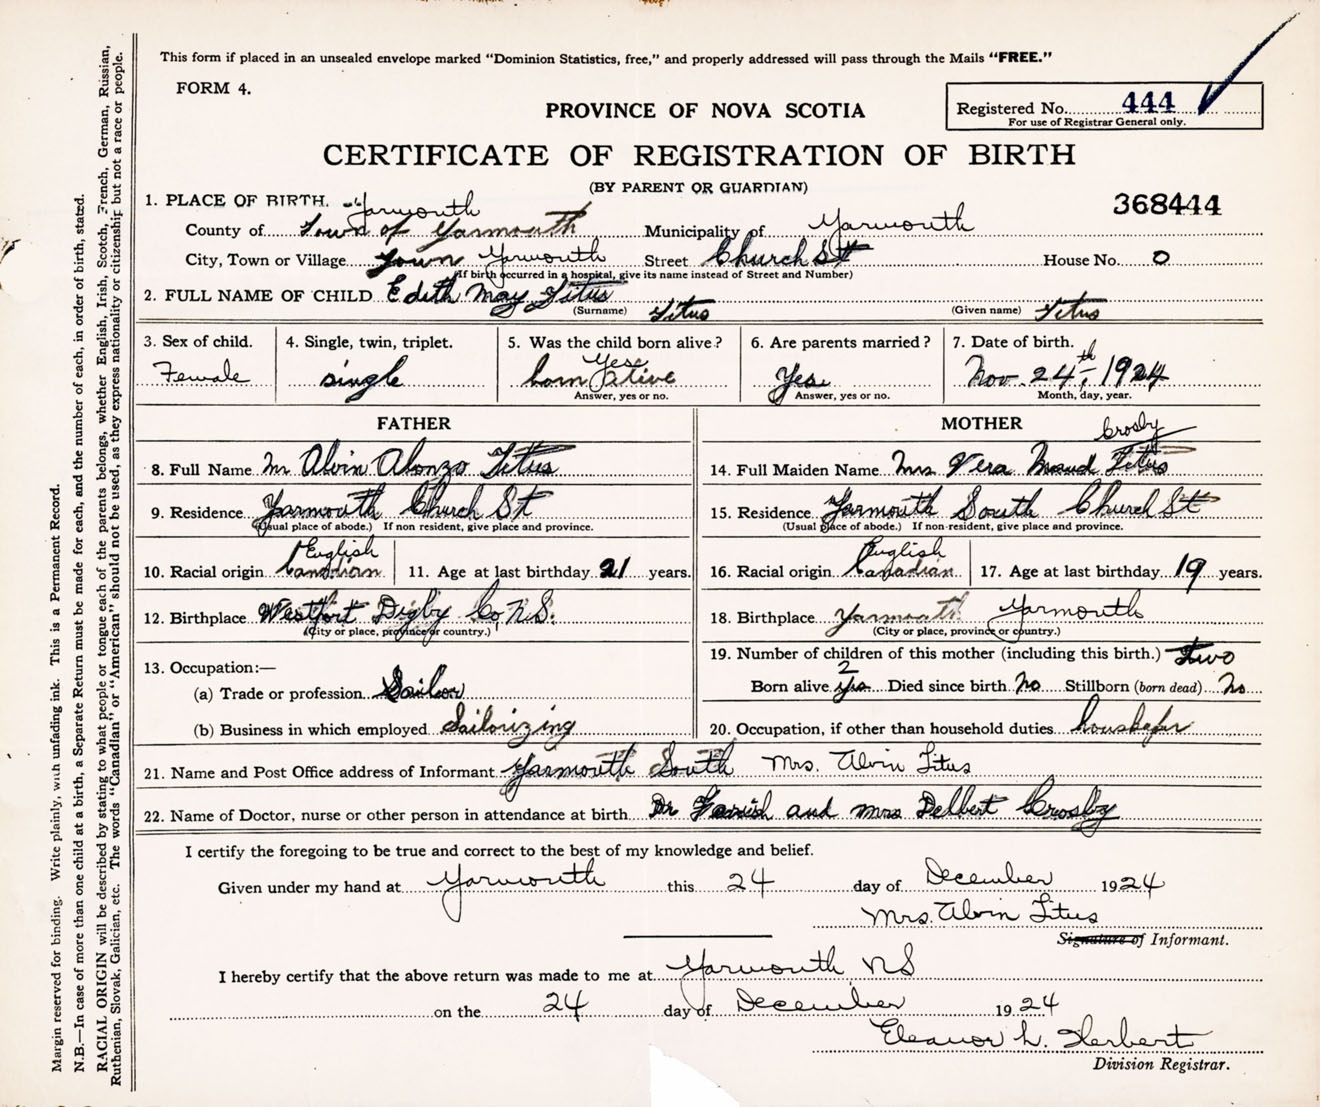 This form if placed in an unsealed envelope marked "Dominion Statistics, free," and properly addressed will pass through the Mails "FREE."
FORM 4.
PROVINCE OF NOVA SCOTIA
Registered No. 444
For use of Registrar General only.
CERTIFICATE OF REGISTRATION OF BIRTH
(BY PARENT OR GUARDIAN)
368444
1. PLACE OF BIRTH. Yarmouth
County of Town of Yarmouth Municipality of Yarmouth
City, Town or Village Town Yarmouth Street Church St House No. 0
(If birth occurred in a hospital, give its name instead of Street and Number)
2. FULL NAME OF CHILD Edith May Titus
(Surname) Titus (Given name) Titus
3. Sex of child. 4. Single, twin, triplet. 5. Was the child born alive? 6. Are parents married? 7. Date of birth.
Female single born alive Yes Yes Nov 24th, 1924
Answer, yes or no. Answer, yes or no. Month, day, year.
FATHER MOTHER
Crosby
8. Full Name M Alvin Alonzo Titus 14. Full Maiden Name Mrs Vera Maud Titus
9. Residence Yarmouth Church St 15. Residence Yarmouth South Church St
(Usual place of abode.) If non resident, give place and province. (Usual place of abode.) If non-resident, give place and province.
English English
10. Racial origin Canadian 11. Age at last birthday 21 years. 16. Racial origin Canadian 17. Age at last birthday 19 years.
12. Birthplace Westport Digby Co N.S. 18. Birthplace Yarmouth Yarmouth
(City or place, province or country.) (City or place, province or country.)
13. Occupation:— 19. Number of children of this mother (including this birth.) Two
(a) Trade or profession Sailor Born alive yes 2 Died since birth No Stillborn (born dead) No
(b) Business in which employed Sailorizing 20. Occupation, if other than household duties
21. Name and Post Office address of Informant Yarmouth South Mrs. Alvin Titus
22. Name of Doctor, nurse or other person in attendance at birth Dr Farish and Mrs Delbert Crosby
I certify the foregoing to be true and correct to the best of my knowledge and belief.
Given under my hand at Yarmouth this 24 day of December 1924
Mrs. Alvin Titus
Signature of Informant.
I hereby certify that the above return was made to me at Yarmouth NS
on the 24 day of December 1924
Eleanor L. Herbert
Division Registrar.
Margin reserved for binding. Write plainly, with unfading ink. This is a Permanent Record.
N.B.—In case of more than one child at a birth, a Separate Return must be made for each, and the number of each, in order of birth, stated.
RACIAL ORIGIN will be described by stating to what people or tongue each of the parents belongs, whether English, Irish, Scotch, French, German, Russian,
Ruthenian, Slovak, Galician, etc. The words "Canadian" or "American" should not be used, as they express nationality or citizenship but not a race or people.